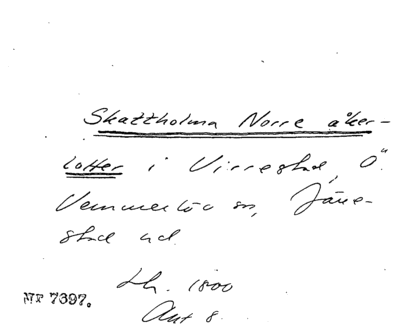 Skattholma Norre åker-
lotter i Virrestad, Ö.
Vemmerlöv sn, Järre-
stad hd.
Lh. 1800
Akt 8
NF 7397.